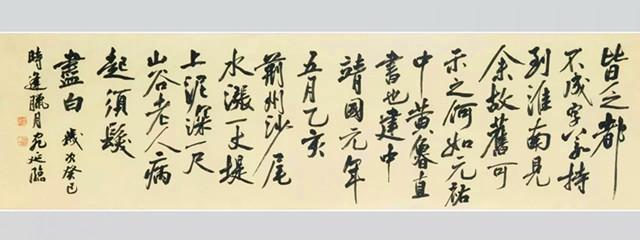 皆之都
不成字若持
到淮南見
余故舊可
示之何如元祐
中黃魯直
書也建中
靖國元年
五月乙亥
荊州沙尾
水漲一丈堤
上泥深一尺
山谷老人病
起須髮
盡白 歲次癸巳
時逢臘月延臨